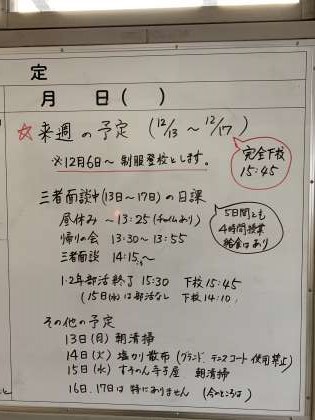 定
月 日( )
☆来週の予定 (12/13 ~ 12/17)
※12月6日~ 制服登校とします。
完全下校
15:45
三者面談中(13日~17日)の日課
昼休み ~13:25(チャイムあり)
帰りの会 13:30~13:55
三者面談 14:15~
5日間とも
4時間授業
給食はあり
1・2年部活終了 15:30 下校 15:45
(15日(水)は部活なし 下校14:10)
その他の予定
13日(月) 朝清掃
14日(火) 塩カリ散布 (グランド、テニスコート使用禁止)
15日(水) すその寺子屋 朝清掃
16日、17日は特にありません (今のところは)